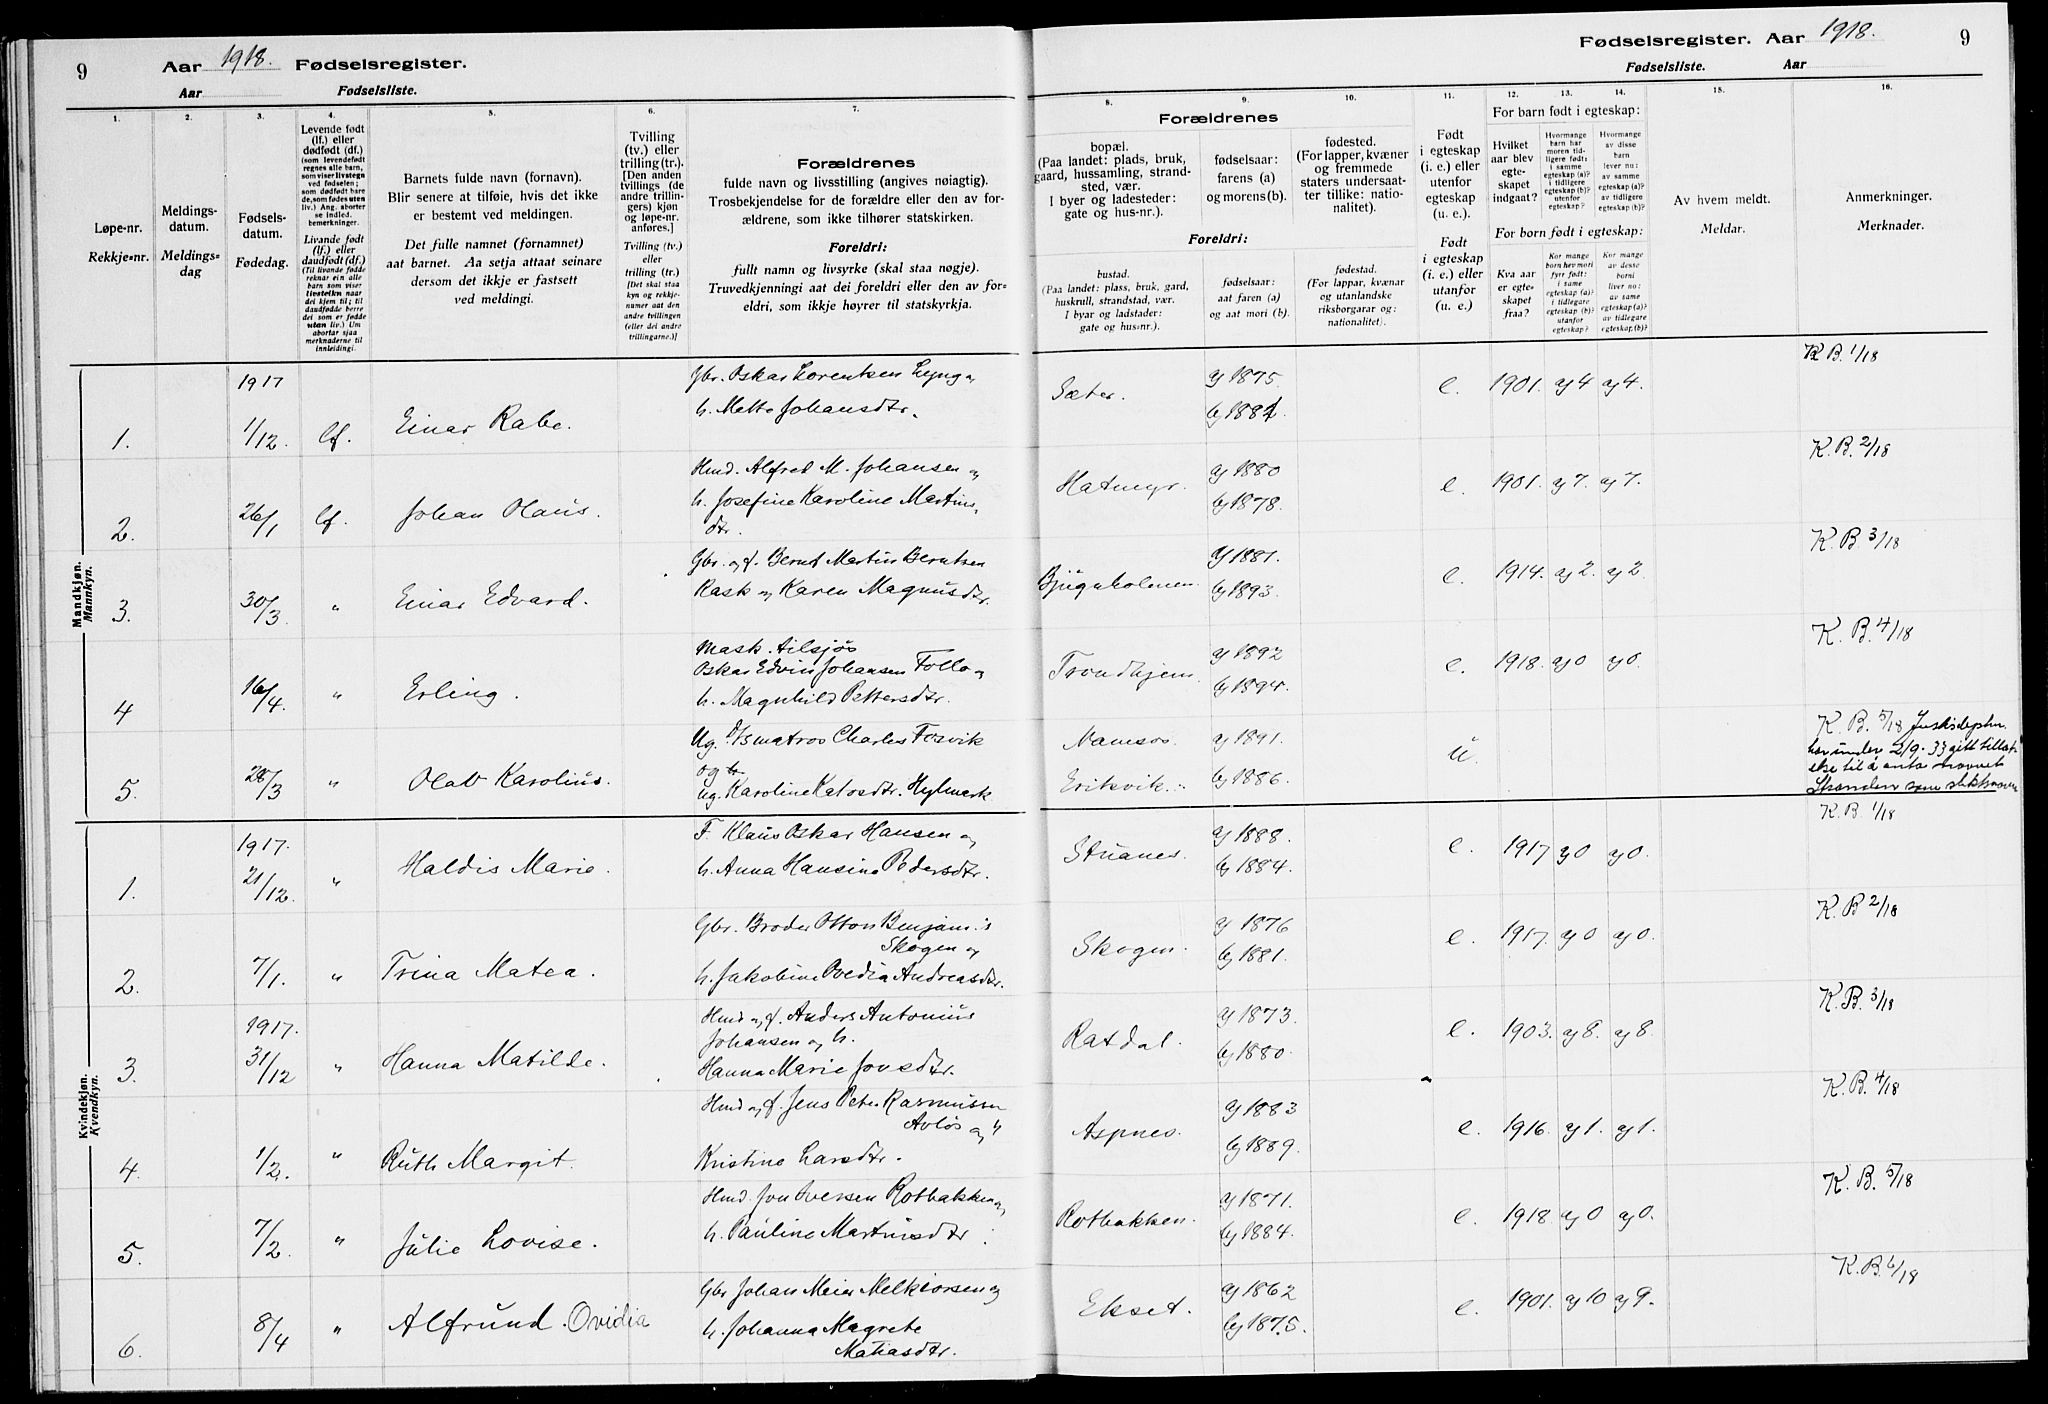 9 Aar 1918. Fødselsregister.
Aar Fødselsliste.
Fødselsregister. Aar 1918. 9
Fødselsliste. Aar
1.
Løpe-nr.
Rekkje-nr.
2.
Meldings-
datum.
Meldings-
dag
3.
Fødsels-
datum.
Fødedag.
4.
Levende født
(lf.) eller
dødfødt (df.)
(som levendefødt
regnes alle barn,
som viser livstegn
ved fødselen;
som dødfødt bare
de, som fødes uten
liv.) Ang. aborter
se indled.
bemerkninger.
Livande født
(lf.) eller
daudfødt (df.)
(Til livande fødde
reknar ein alle
barn som syner
livsteikn naar
dei kjem til; til
daudfødde berre
dei som er fødde
utan liv.) Um
abortar sjaa
merknaderne til
innleidingi.
5.
Barnets fulde navn (fornavn).
Blir senere at tilføie, hvis det ikke
er bestemt ved meldingen.
Det fulle namnet (fornamnet)
aat barnet. Aa setja attaat seinare
dersom det ikkje er fastsett
ved meldingi.
6.
Tvilling
(tv.) eller
trilling (tr.).
[Den anden
tvillings (de
andre trillin-
gers) kjøn
og løpe-nr.
anføres.]
Tvilling (tv.)
eller
trilling (tr.)
[Det skal staa
kyn og rekkje-
numer aat den
andre tvillingen
(eller dei andre
trillingarne.)]
7.
Forældrenes
fulde navn og livsstilling (angives nøiagtig).
Trosbekjendelse for de forældre eller den av for-
ældrene, som ikke tilhører statskirken.
Foreldri:
fullt namn og livsyrke (skal staa nøgje).
Truvedkjenningi aat dei foreldri eller den av for-
eldri, som ikkje høyrer til statskyrkja.
Forældrenes
8.
bopæl.
(Paa landet: plads, bruk,
gaard, hussamling, strand-
sted, vær.
I byer og ladesteder:
gate og hus-nr.).
Foreldri:
bustad.
(Paa landet: plass, bruk, gard,
huskrull, strandstad, vær.
I byar og ladstader:
gate og hus-nr.).
9.
fødselsaar:
farens (a)
og morens (b).
fødselsaar:
aat faren (a)
og aat mori (b).
10.
fødested.
(For lapper, kvæner
og fremmede
staters undersaat-
ter tillike: natio-
nalitet).
fødestad.
(For lappar, kvænar
og utanlandske
riksborgarar og:
nationalitet).
11.
Født
i egteskap
(i. e.) eller
utenfor
egteskap
(u. e.).
Født
i egteskap
(i. e.) eller
utanfor
(u. e.)
For barn født i egteskap:
12.
Hvilket
aar blev
egte-
skapet
indgaat?
13.
Hvormange
barn har
moren tid-
ligere født:
i samme
egteskap (a)?
i tidligere
egteskap (b)?
utenfor
egteskap?
14.
Hvormange
av disse
barn
lever nu:
av samme
egteskap (a)?
av tidligere
egteskap (b)?
For born født i egteskap:
Kva aar
er egte-
skapet
fraa?
Kor mange
born hev mori
fyrr født:
i same
egteskap (a)?
i tidlegare
egteskap (b)?
utanfor
egteskap?
Kor mange
av desse
borni
liver no:
av same
egteskap (a)?
av tidlegare
egteskap (b)?
15.
Av hvem meldt.
Meldar.
16.
Anmerkninger.
Merknader.
Mandkjøn.
Mannkyn.
1. 1917 1/12. lf. Einar Rabe. Gbr. Oskar Lorentsen Lyng og
h. Mette Johansdtr. Sæter. a) 1875. b) 1881 e. 1901. a) 4 a) 4. K.B. 1/18
2. 26/1 lf. Johan Olaus. Hmd. Alfred M. Johansen og
h. Josefine Karoline Martins-
dtr. Hatmyr. a) 1880 b) 1878. e. 1901. a) 7. a) 7. K.B. 2/18
3. 30/3 " Einar Edvard. Gbr. og f. Bernt Martin Berntsen
Rask og Karen Magnusdtr. Bjugnholmen. a) 1881. b) 1893. e. 1914. a) 2. a) 2. K.B. 3/18
4 16/4. " Erling. Mask.
Oskar Edvin Johansen Follo og
h. Magnhild Pettersdtr. Trondhjem. a) 1892 b) 1894. e. 1918. a) 0 a) 0. K.B. 4/18
5. 28/3 " Olav Karolius. Ug. matros Charles Fosvik
og
ug. Karoline Hylmark Namsos. Eriksvik. a) 1891. b) 1886. u. K.B. 5/18
har under 2/9.33 gitt tillat-
else til å anta navnet
som slektsnavn
Kvindekjøn.
Kvendkyn.
1. 1917. 21/12. " Haldis Marie. F. Klaus Oskar Hansen og
h. Anna Hansine Pedersdtr. a) 1888. b) 1884. e. 1917 a) 0 a) 0. K.B. 1/18
2. 7/1. " Trina Matea. Gbr. Broder Otton
Skogen og
h. Jakobine Ovedia Andreasdtr. Skogen. a) 1876 b) 1881. e. 1917. a) 0 a) 0. K.B 2/18
3. 1917. 31/12 " Hanna Matilde. Hmd og f. Anders Antonius
Johansen og h.
Hanna Marie Jonsdtr. Raxdal. a) 1873. b) 1880. e. 1903. a) 8. a) 8. K.B. 3/18
4. 1/2. " Ruth Margit. Hmd og f. Jens Peter Rasmussen
og h
Kristine Larsdtr. Aspnes. a) 1883 b) 1889. e. 1916. a) 1. a) 1. K.B. 4/18
5. 7/2. " Julie Lovise. Hmd. Jon Iversen Rotbakken og
h. Pauline Martinsdtr. Rotbakken. a) 1871. b) 1884. e. 1918 a) 0 a) 0. K.B. 5/18
6. 8/4 " Alfrund Ovidia Gbr Johan Meier Melkiorsen og
h. Johanna Magrete
Matiasdtr. Ekset. a) 1862 b) 1875. e. 1901. a) 10 a) 9. K.B. 6/18